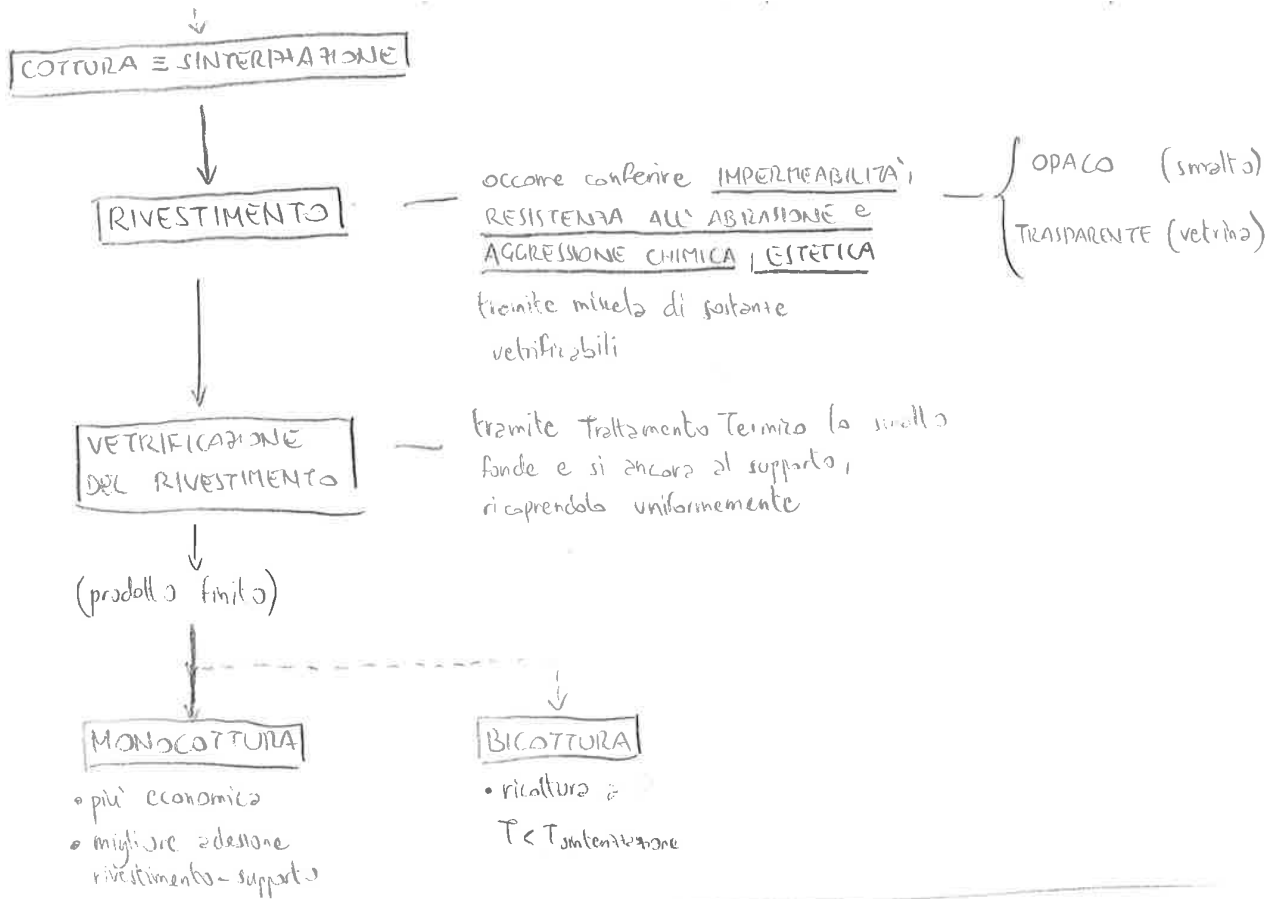 COTTURA ≡ SINTERIZZAZIONE
RIVESTIMENTO
occorre conferire IMPERMEABILITÀ,
RESISTENZA ALL' ABRASIONE e
AGGRESSIONE CHIMICA, ESTETICA
tramite miscela di sostanze
vetrificabili
OPACO (smalto)
TRASPARENTE (vetrina)
VETRIFICAZIONE
DEL RIVESTIMENTO
tramite Trattamento Termico lo smalto
fonde e si ancora al supporto,
ricoprendolo uniformemente
(prodotto finito)
MONOCOTTURA
• più economica
• migliore adesione
rivestimento-supporto
BICOTTURA
• ricottura a
T < Tsinterizzazione